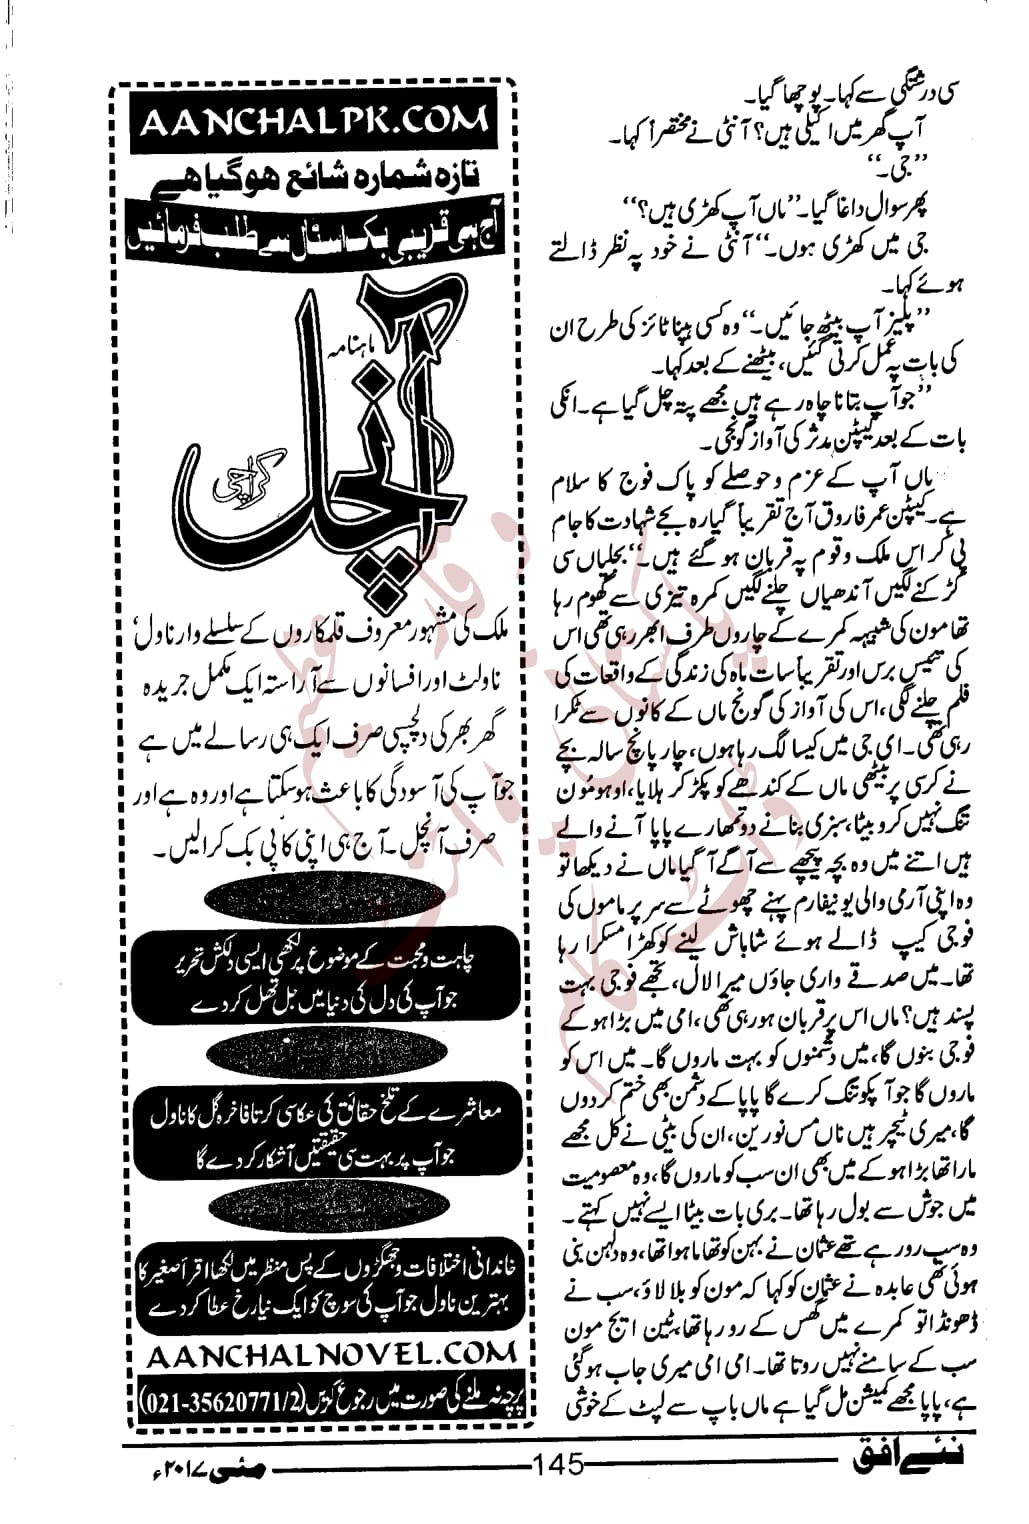 سی درشتگی سے کہا۔ پوچھا گیا۔
آپ گھر میں اکیلی ہیں؟ آنٹی نے مختصراً کہا۔
”جی۔“
پھر سوال داغا گیا۔ ”ماں آپ کھڑی ہیں؟“
جی میں کھڑی ہوں۔“ آنٹی نے خود پہ نظر ڈالتے
ہوئے کہا۔
”پلیز آپ بیٹھ جائیں۔“ وہ کسی ہپناٹائز کی طرح ان
کی بات پہ عمل کرتی گئیں، بیٹھنے کے بعد کہا۔
”جو آپ بتانا چاہ رہے ہیں مجھے پتہ چل گیا ہے۔ انکی
بات کے بعد کیپٹن مدثر کی آواز گونجی۔
ہاں آپ کے عزم و حوصلے کو پاک فوج کا سلام
ہے۔ کیپٹن عمر فاروق آج تقریباً گیارہ بجے شہادت کا جام
پی کر اس ملک و قوم پہ قربان ہو گئے ہیں۔“ بجلیاں سی
کڑکنے لگیں آندھیاں چلنے لگیں کمرہ تیزی سے گھوم رہا
تھا مون کی شبیہہ کمرے کے چاروں طرف ابھر رہی تھی اس
کی تیئس برس اور تقریباً سات ماہ کی زندگی کے واقعات کی
فلم چلنے لگی، اس کی آواز کی گونج ماں کے کانوں سے ٹکرا
رہی تھی۔ ای جی میں کیسا لگ رہا ہوں، چار پانچ سالہ بچے
نے کرسی پر بیٹھی ماں کے کندھے کو پکڑ کر ہلایا، اوہو مون
تنگ نہیں کرو بیٹا، سبزی بنانے دو تمھارے پاپا آنے والے
ہیں اتنے میں وہ بچہ پیچھے سے آگے آ گیا ماں نے دیکھا تو
وہ اپنی آرمی والی یونیفارم پہنے چھوٹے سے سر پر ماموں کی
فوجی کیپ ڈالے ہوئے شاباش لینے کو کھڑا مسکرا رہا
تھا۔ میں صدقے واری جاؤں میرا لال، تجھے فوجی بہت
پسند ہیں؟ ماں اس پر قربان ہو رہی تھی، امی میں بڑا ہو کے
فوجی بنوں گا، میں دشمنوں کو بہت ماروں گا۔ میں اس کو
ماروں گا جو آپکو تنگ کرے گا پاپا کے دشمن بھی ختم کردوں
گا، میری ٹیچر ہیں ناں مس نورین، ان کی بیٹی نے کل مجھے
مارا تھا بڑا ہو کے میں بھی ان سب کو ماروں گا، وہ معصومیت
میں جوش سے بول رہا تھا۔ بری بات بیٹا ایسے نہیں کہتے۔
وہ سب رو رہے تھے عثمان نے بہن کو تھاما ہوا تھا، وہ دلہن بنی
ہوئی تھی عابدہ نے عثمان کو کہا کہ مون کو بلا لاؤ، سب نے
ڈھونڈا تو کمرے میں گھس کے رو رہا تھا، ٹین ایج مون
سب کے سامنے نہیں روتا تھا۔ امی امی میری جاب ہو گئی
ہے، پاپا مجھے کمیشن مل گیا ہے ماں باپ سے لپٹ کے خوشی
AANCHALPK.COM
تازہ شمارہ شائع ہو گیا ہے
آج ہی قریبی بک اسٹال سے طلب فرمائیں
ماہنامہ
آنچل
کراچی
ملک کی مشہور معروف قلمکاروں کے سلسلے وار ناول،
ناولٹ اور افسانوں سے آراستہ ایک مکمل جریدہ
گھر بھر کی دلچسپی صرف ایک ہی رسالے میں ہے
جو آپ کی آسودگی کا باعث ہو سکتا ہے اور وہ ہے اور
صرف آنچل۔ آج ہی اپنی کاپی بک کرالیں۔
چاہت و محبت کے موضوع پر لکھی ایسی دلکش تحریر
جو آپ کی دل کی دنیا میں جل تھل کر دے
معاشرے کے تلخ حقائق کی عکاسی کرتا فاخرہ گل کا ناول
جو آپ پر بہت سی حقیقتیں آشکار کر دے گا
خاندانی اختلافات و جھگڑوں کے پس منظر میں لکھا اقرأ صغیر کا
بہترین ناول جو آپ کی سوچ کو ایک نیا رخ عطا کر دے
AANCHALNOVEL.COM
پرچہ نہ ملنے کی صورت میں رجوع کریں (021-35620771/2)
نئے افق
145
مئی ۲۰۱۷ء